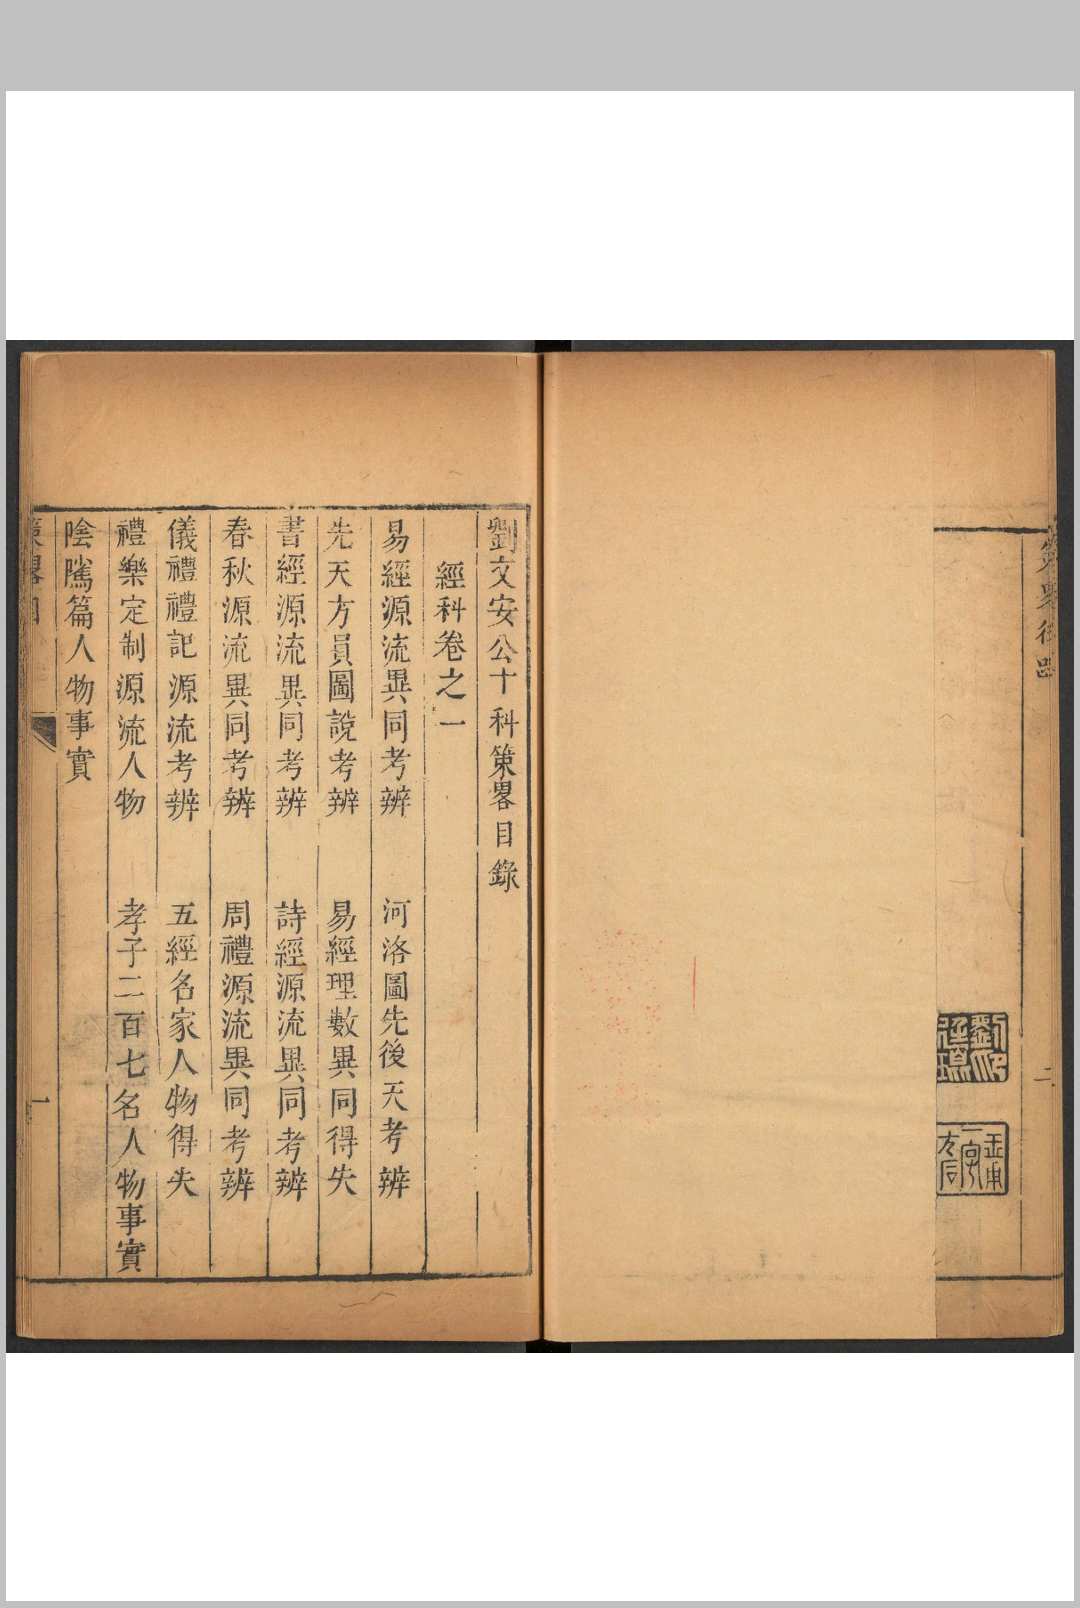 二
劉文安公十科策畧目錄
經科卷之一
易經源流異同考辨　河洛圖先後天考辨
先天方員圖說考辨　易經理數異同得失
書經源流異同考辨　詩經源流異同考辨
春秋源流異同考辨　周禮源流異同考辨
儀禮禮記源流考辨　五經名家人物得失
禮樂定制源流人物　孝子二百七名人物事實
陰隲篇人物事實
一